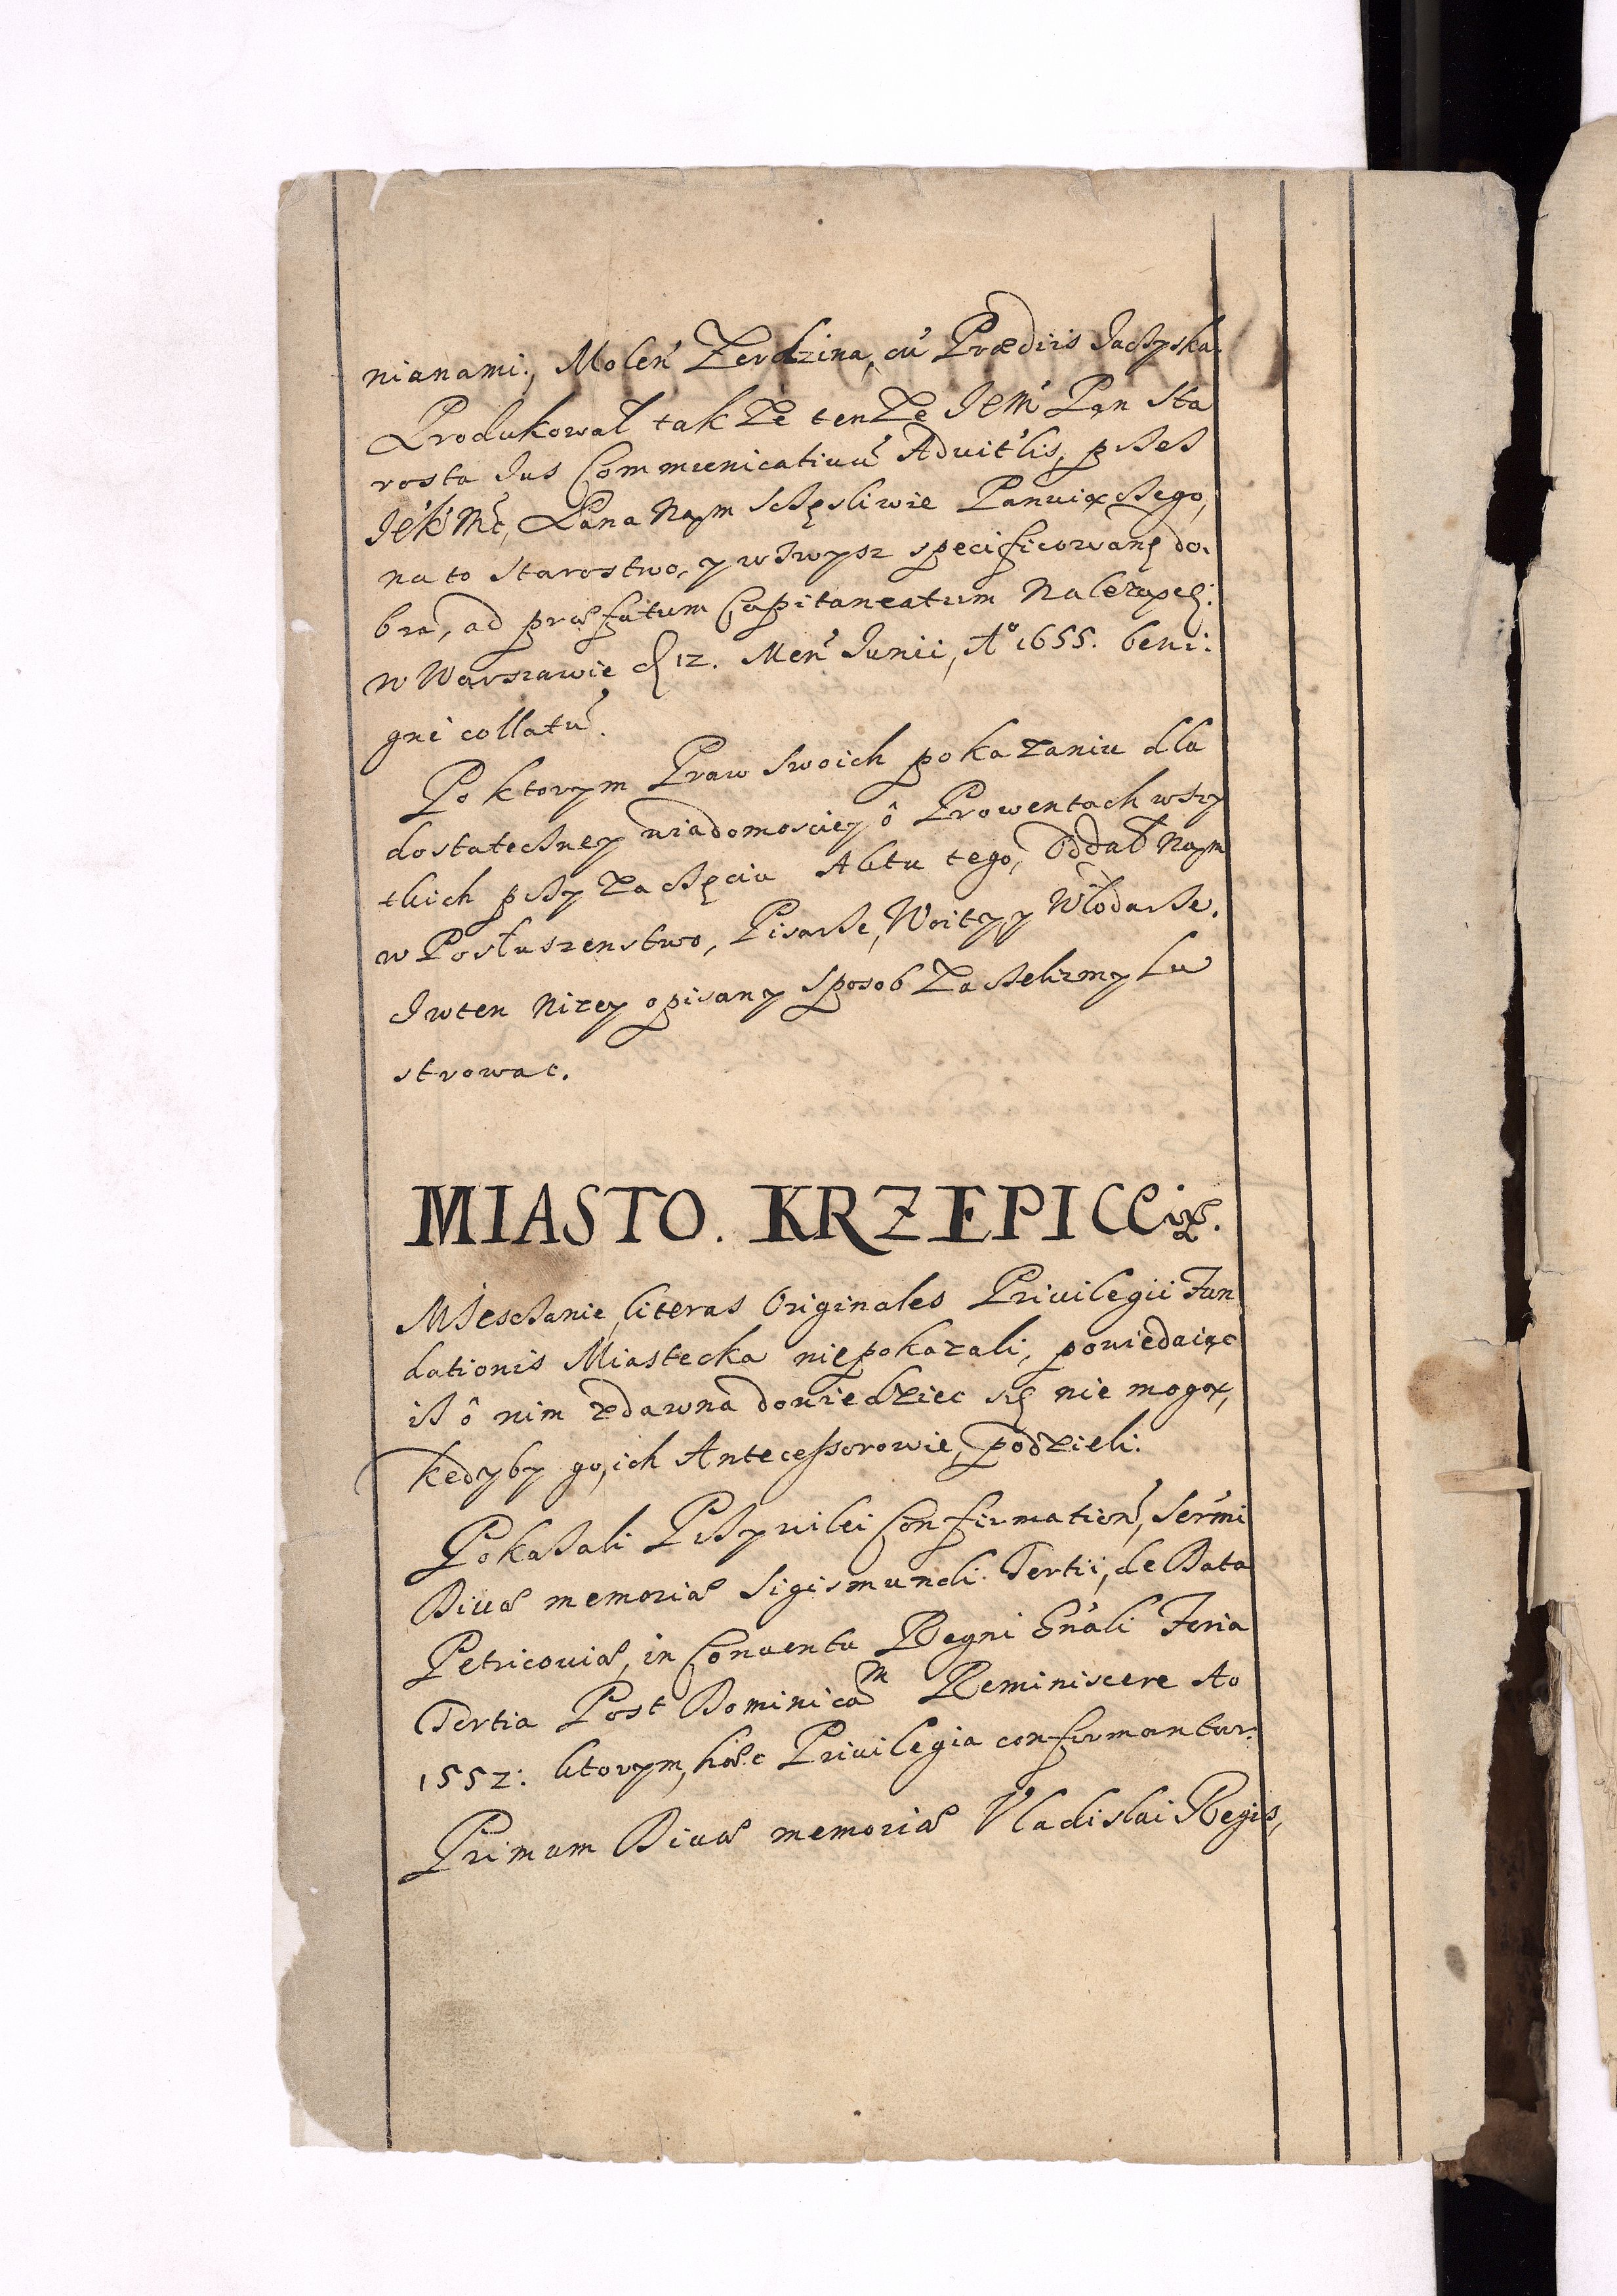 nianami., Molen̄ Zerdzina, cū Prædiis Jaczyska.
Produkował także tenże JEM̄ Pan Sta
rosta Jus Communicativū Advit̄lis, przez
JéKMć, Pana Nasm sczęsliwie Panuiączego,
na to Starostwo, y wzwysz specificowanę do.
bra, ad præfatum Capitaneatum Nalezącę:
w Warszawie d 12. Men̄ Junii, A° 1655. beni:
gne collatū.
Po ktorym Praw swoich pokazaniu dla
dostateczney wiadomosciey ô Prowentach wszy
tkich przy zaczęciu Aktu tego, Oddał Nam
w Posłuszenstwo, Pisarze, Woity y Włodarze.
I w ten nizey opisany sposob zaczelizmy Lu
strowac.
MIASTO. KRZEPICCię.
Miesczanie, literas Originales Privilegii Fun
dationis Miastecka niepokazali, powiedaiąc
iż ô nim zdawna dowiedziec się nie mogą,
kedyby go, ich Antecessorowie, podzieli.
Pokazali Przywilei Confirmation̄, Serm̄i
Divæ memoriæ Sigismundi Tertii, de Data
Petricoviæ, in Conventu Regni Gn̄ali Feria
Tertia Post Dominicam Reminiscere Ao
1552: ktorym, hæc Privilegia confirmantur.
Primum Divæ memoriæ Vladislai Regis,